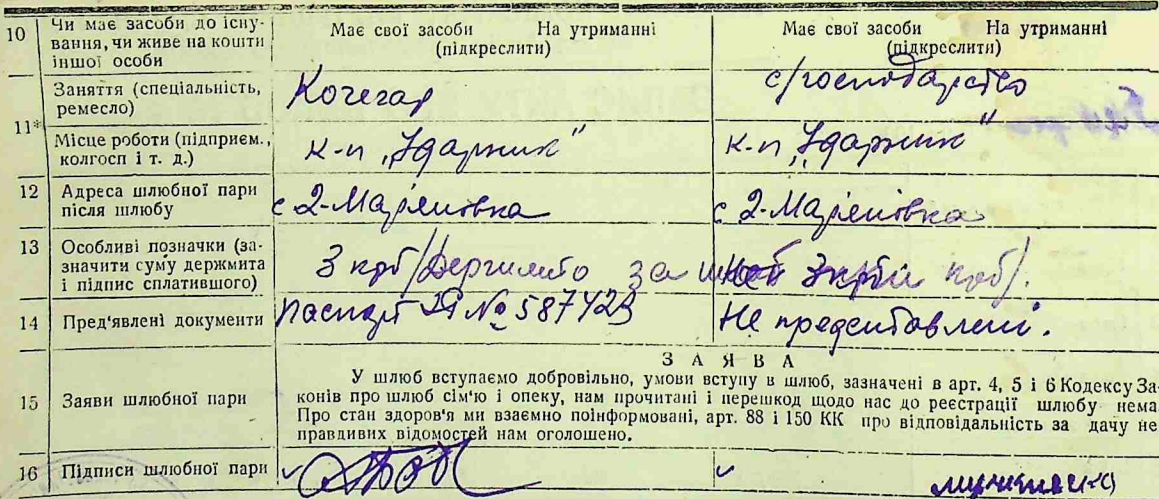 10 Чи має засоби до існу-
вання, чи живе на кошти
іншої особи
Має свої засоби На утриманні
(підкреслити)
Має свої засоби На утриманні
(підкреслити)
11* Заняття (спеціальність,
ремесло)
Кочегар
с/господарство
Місце роботи (підприєм.,
колгосп і т. д.)
к-п „Ударник"
к-п „Ударник"
12 Адреса шлюбної пари
після шлюбу
с 2-Мар'янівка
с 2-Мар'янівка
13 Особливі позначки (за-
значити суму держмита
і підпис сплатившого)
3 крб /Держмито за шлюб
крб/.
14 Пред'явлені документи
Паспорт № 587423
Не представлені.
ЗАЯВА
15 Заяви шлюбної пари
У шлюб вступаємо добровільно, умови вступу в шлюб, зазначені в арт. 4, 5 і 6 Кодексу За-
конів про шлюб сім'ю і опеку, нам прочитані і перешкод щодо нас до реєстрації шлюбу нема
Про стан здоров'я ми взаємно поінформовані, арт. 88 і 150 КК про відповідальність за дачу не
правдивих відомостей нам оголошено.
16 Підписи шлюбної пари